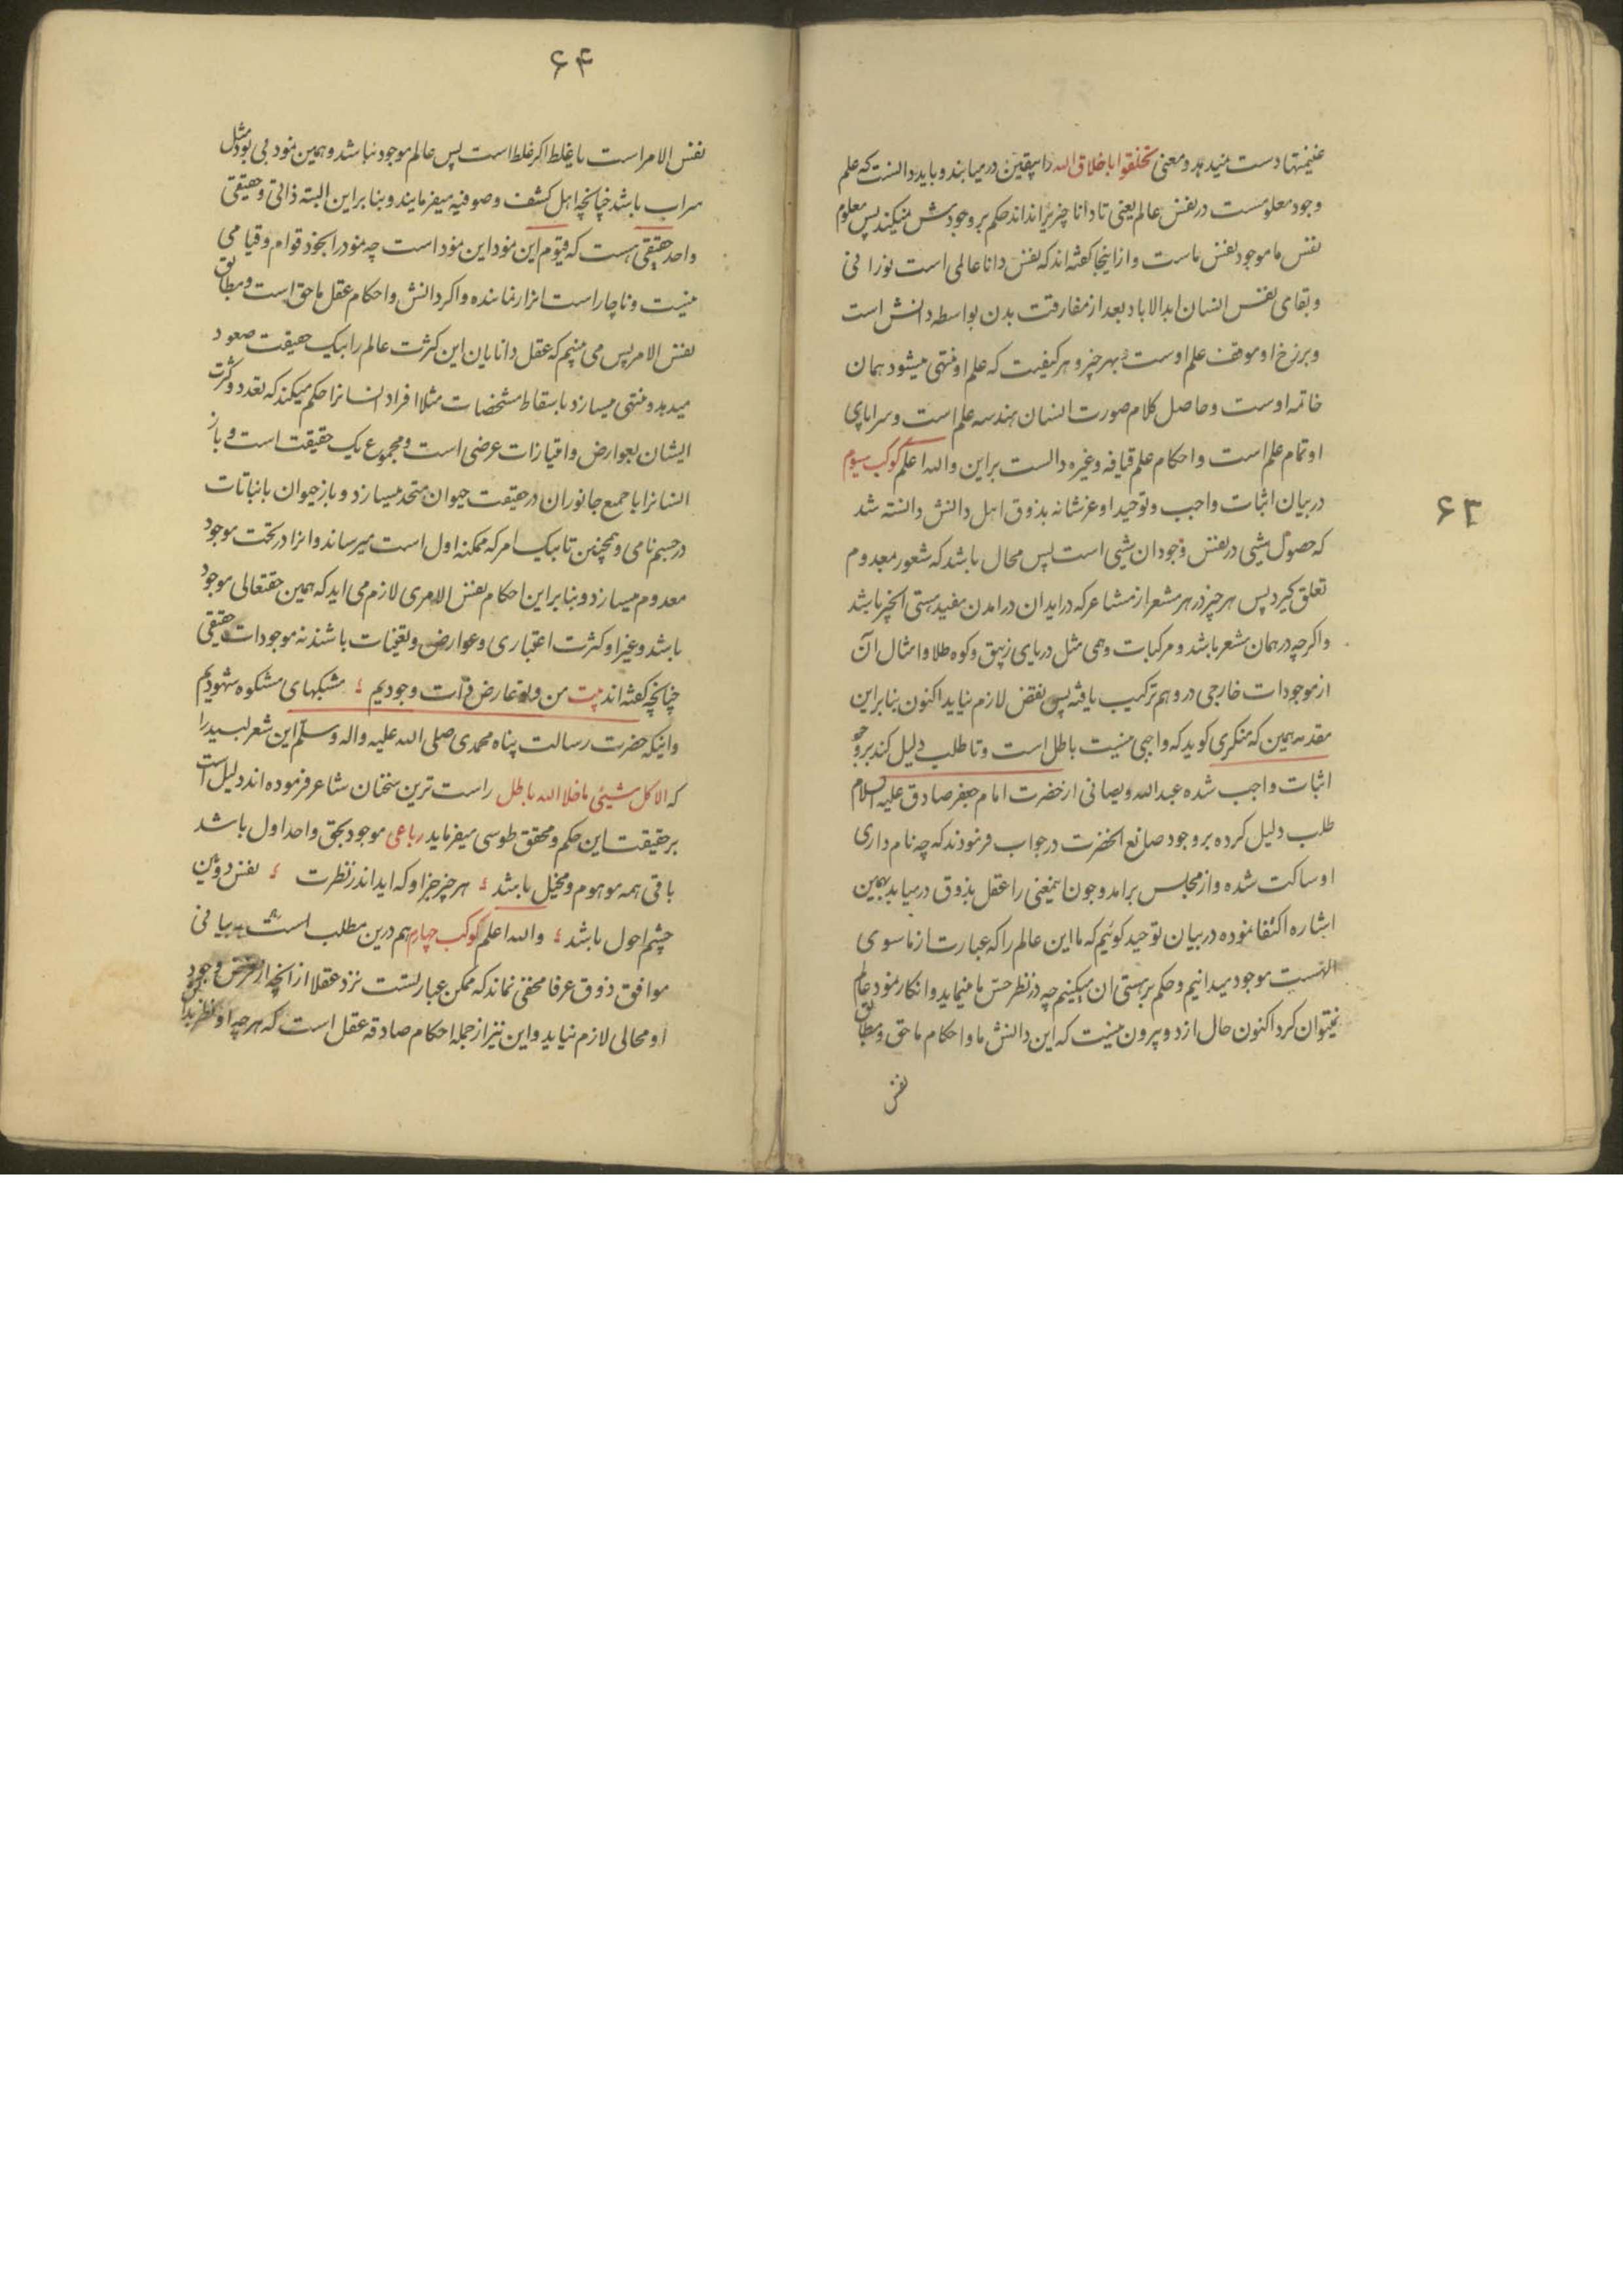 ۶۳
غنیمتها دست میدهد و معنی تخلقوا باخلاق الله را بیقین درمیابند و باید دانست که علم
وجود معلومست در نفس عالم یعنی تا دانا چیزیرا نداند حکم بر وجودش نمیکند پس معلوم
نفس ما موجود نفس ماست و از اینجا کفته اند که نفس دانا عالمی است نورانی
و بقای نفس انسان ابدالاباد بعد از مفارقت بدن بواسطه دانش است
و برزخ او موقف علم اوست و بهر چیز و هر کیفیت که علم او منتهی میشود همان
خاتمه اوست و حاصل کلام صورت انسان هندسه علم است و سراپای
او تمام علم است و احکام علم قیافه و غیره دالست براین والله اعلم کوکب سیوم
در بیان اثبات واجب و توحید او عزشانه بذوق اهل دانش دانسته شد
که حصول شیی در نفس وجودان شیی است پس محال باشد که شعور بمعدوم
تعلق کیرد پس هر چیز در هر مشعر از مشاعر که در اید ان درامدن مفید هستی انچیز باشد
و اکرچه در همان مشعر باشد و مرکبات وهمی مثل دریای زیبق و کوه طلا و امثال آن
از موجودات خارجی در وهم ترکیب یافته پس نقض لازم نیاید اکنون بنابراین
مقدمه همین که منکری کوید که واجبی نیست باطل است و تا طلب دلیل کند بر وجو
اثبات واجب شده عبدالله ویصانی از حضرت امام جعفر صادق علیه السلام
طلب دلیل کرده بر وجود صانع انحضرت در جواب فرمودند که چه نام داری
او ساکت شده و از مجلس برامد و چون اینمعنی را عقل بذوق درمیابد بهمین
اشاره اکتفا نموده در بیان توحید کوئیم که ما این عالم را که عبارت از ماسوی
الهست موجود میدانیم و حکم بر هستی ان میکنیم چه در نظر حس ما مینماید و انکار نمود عالم
نمیتوان کرد اکنون حال از دو بیرون نیست که این دانش ما و احکام ما حق و مطابق
نفس
۶۴
نفس الامر است یا غلط اکر غلط است پس عالم موجود نباشد و همین نمود بی بود مثل
سراب باشد چنانچه اهل کشف و صوفیه میفرمایند و بنابراین البته ذاتی و حقیقی
واحد حقیقی هست که قیوم این نمود این نمود است چه نمود را بخود قوام و قیامی
نیست و ناچار است انرا نماینده و اکر دانش و احکام عقل ما حق است و مطابق
نفس الامر پس می بینیم که عقل دانایان این کثرت عالم را بیک حقیقت صعود
میدهد و منتهی میسازد باسقاط مشخصات مثلا افراد انسانرا حکم میکند که تعدد و کثرت
ایشان بعوارض و امتیازات عرضی است و مجموع یک حقیقت است و باز
انسانرا با جمع جانوران در حقیقت حیوان متحد میسازد و باز حیوان با نباتات
در جسم نامی و همچنین تا بیک امر که ممکنه اول است میرساند و انرا در تحت موجود
معدوم میسازد و بنابراین احکام نفس الامری لازم می اید که همین حقتعالی موجود
باشد و غیر او کثرت اعتباری و عوارض و تعینات باشند نه موجودات حقیقی
چنانچه کفته اند بیت من و تو عارض ذات وجودیم ؛ مشبکهای مشکوه شهودیم
و اینکه حضرت رسالت پناه محمدی صلی الله علیه واله وسلم این شعر لبید را
که الا کل شیئی ماخلا الله باطل راست ترین سخنان شاعر فرموده اند دلیل است
بر حقیقت این حکم و محقق طوسی میفرماید رباعی موجود بحق واحد اول باشد
باقی همه موهوم و مخیل باشد ؛ هر چیز جز او که اید اندر نظرت ؛ نقش دوئین
چشم احول باشد ؛ والله اعلم کوکب چهارم هم درین مطلب است بیانی
موافق ذوق عرفا مخفی نماند که ممکن عبارتست نزد عقلا از انچه از فرض وجود
او محالی لازم نیاید و این نیز از جمله احکام صادقه عقل است که هر چه او نظر بذاتش